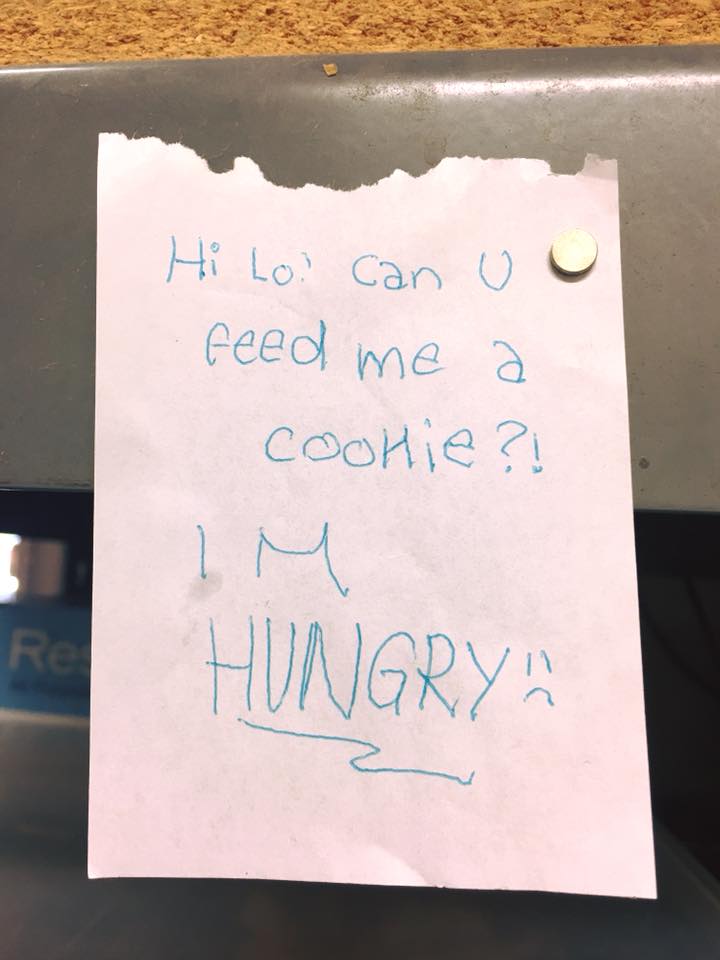 Hi Lo! Can U
feed me a
cookie?!
I M
HUNGRY :(
Res